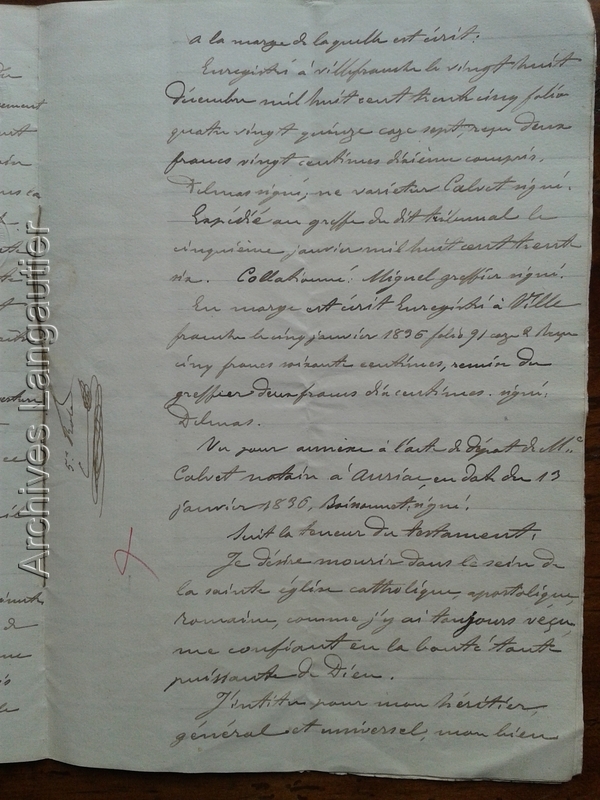 a la marge de laquelle est écrit.
Enregistré à villefranche le vingt huit
décembre mil huit cent trente cinq folio
quatre vingt quinze case sept, reçu deux
francs vingt centimes dixième compris.
Delmas signé, ne varietur Calvet signé.
Expédié au greffe du dit tribunal le
cinquième janvier mil huit cent trente
six. Collationné: Miquel greffier signé.
En marge est écrit Enregistré à Ville
franche le cinq janvier 1836 folio 91 case 2 Reçu
cinq francs soixante centimes, remise du
greffier deux francs dix centimes. signé:
Delmas.
Vu pour annexe à l'acte de dépôt de Me
Calvet notaire à Auriac, en date du 13
janvier 1836, Boissonnet, signé.
Suit la teneur du testament.
Je désire mourir dans le sein de
la sainte église catholique, apostolique,
romaine, comme j'y ai toujours vécu,
me confiant en la bonté toute
puissante de Dieu.
J'institue pour mon héritier,
général et universel, mon bien
Archives Langautier